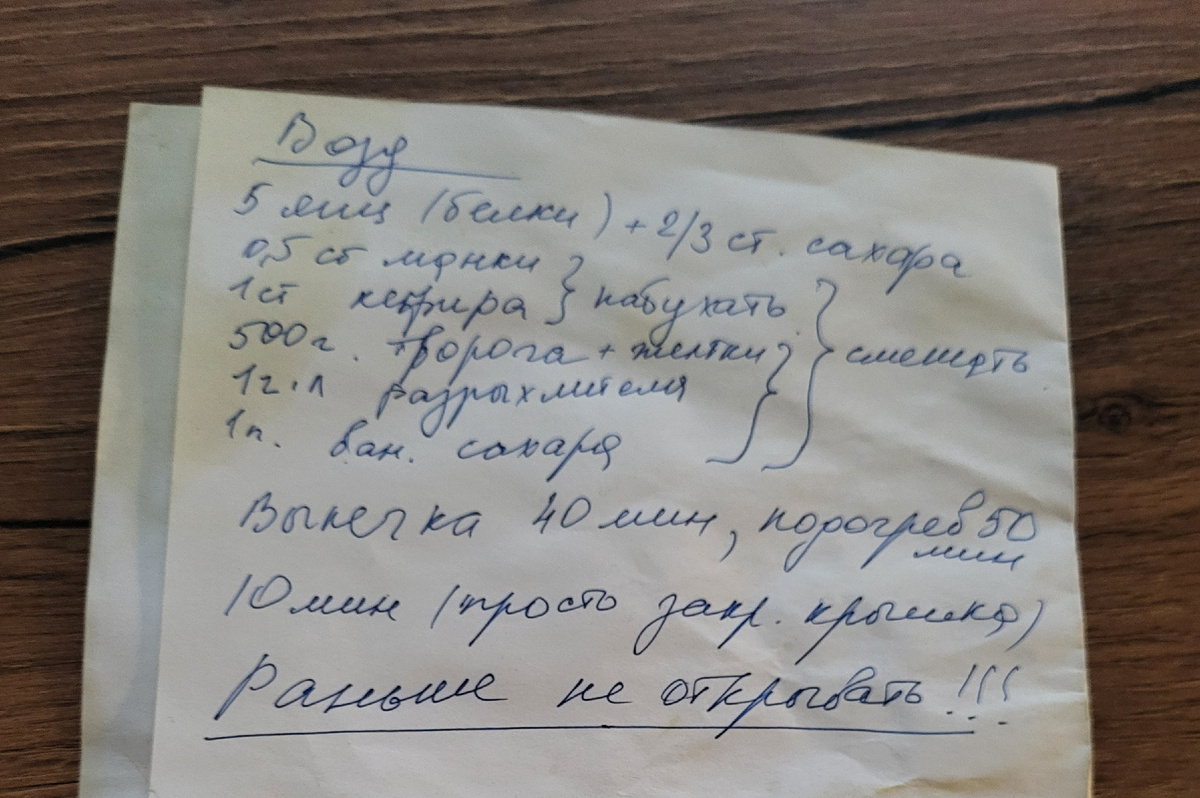 5 яиц (белки) + 2/3 ст. сахара
0,5 ст манки } набухать
1 ст кефира
500 г. творога + желтки } смешать
1 г.л разрыхлителя
1 п. ван. сахара
Выпечка 40 мин, подогрев 50 мин
10 мин (просто закр. крышка)
Раньше не открывать!!!